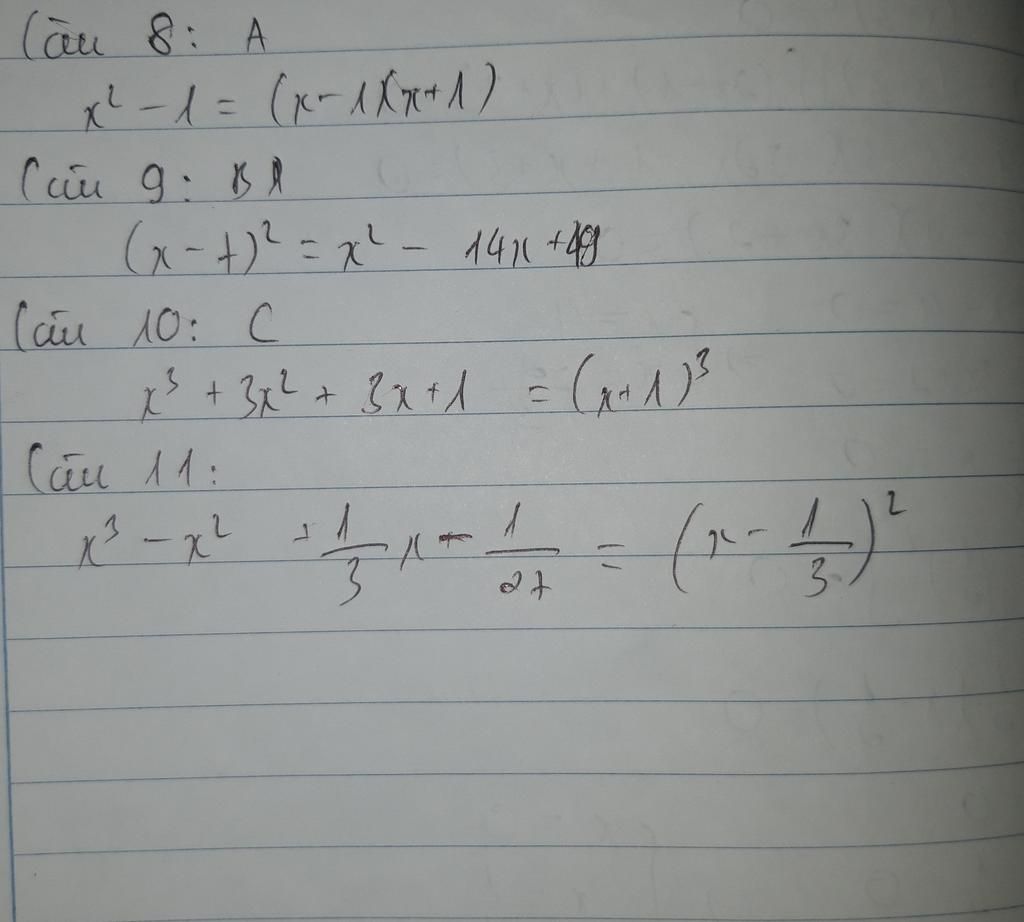 Câu 8: A
x² - 1 = (x-1)(x+1)
Câu 9: A
(x - 7)² = x² - 14x + 49
Câu 10: C
x³ + 3x² + 3x + 1 = (x+1)³
Câu 11:
x³ - x² + 1/3 x - 1/27 = (x - 1/3)²